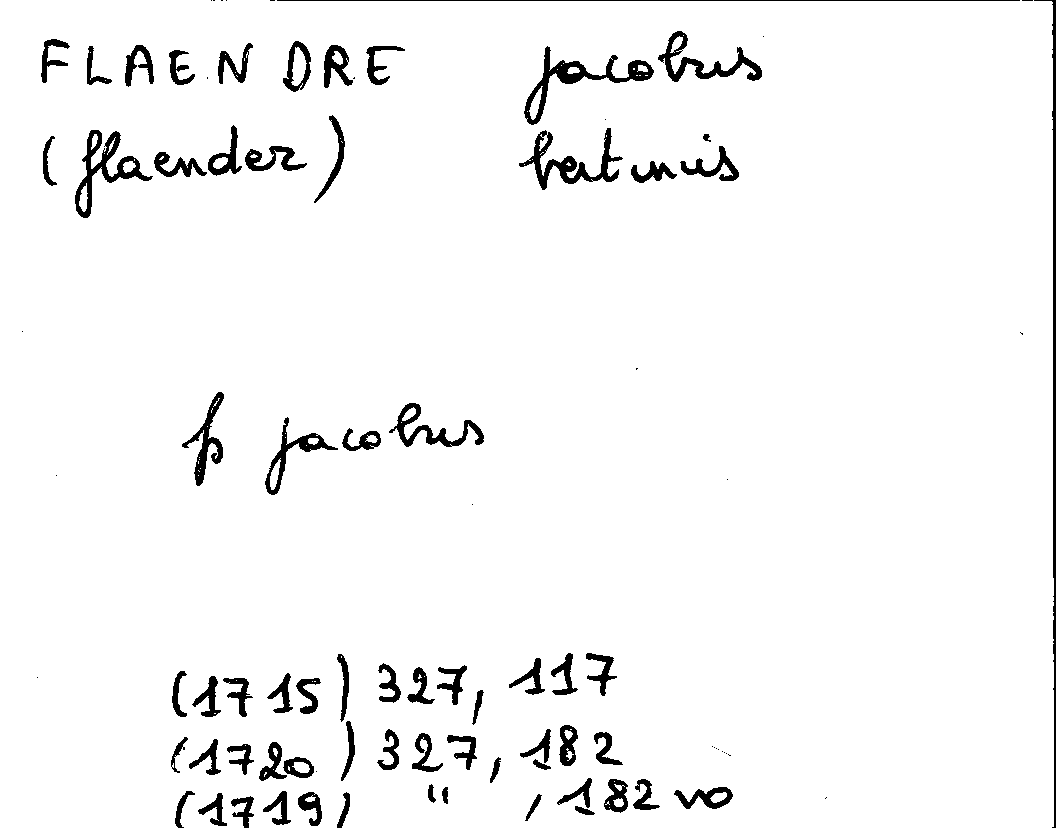 FLAENDRE jacobus
(flaender) bertinus
p jacobus
(1715) 327, 117
(1720) 327, 182
(1719) " , 182 vo